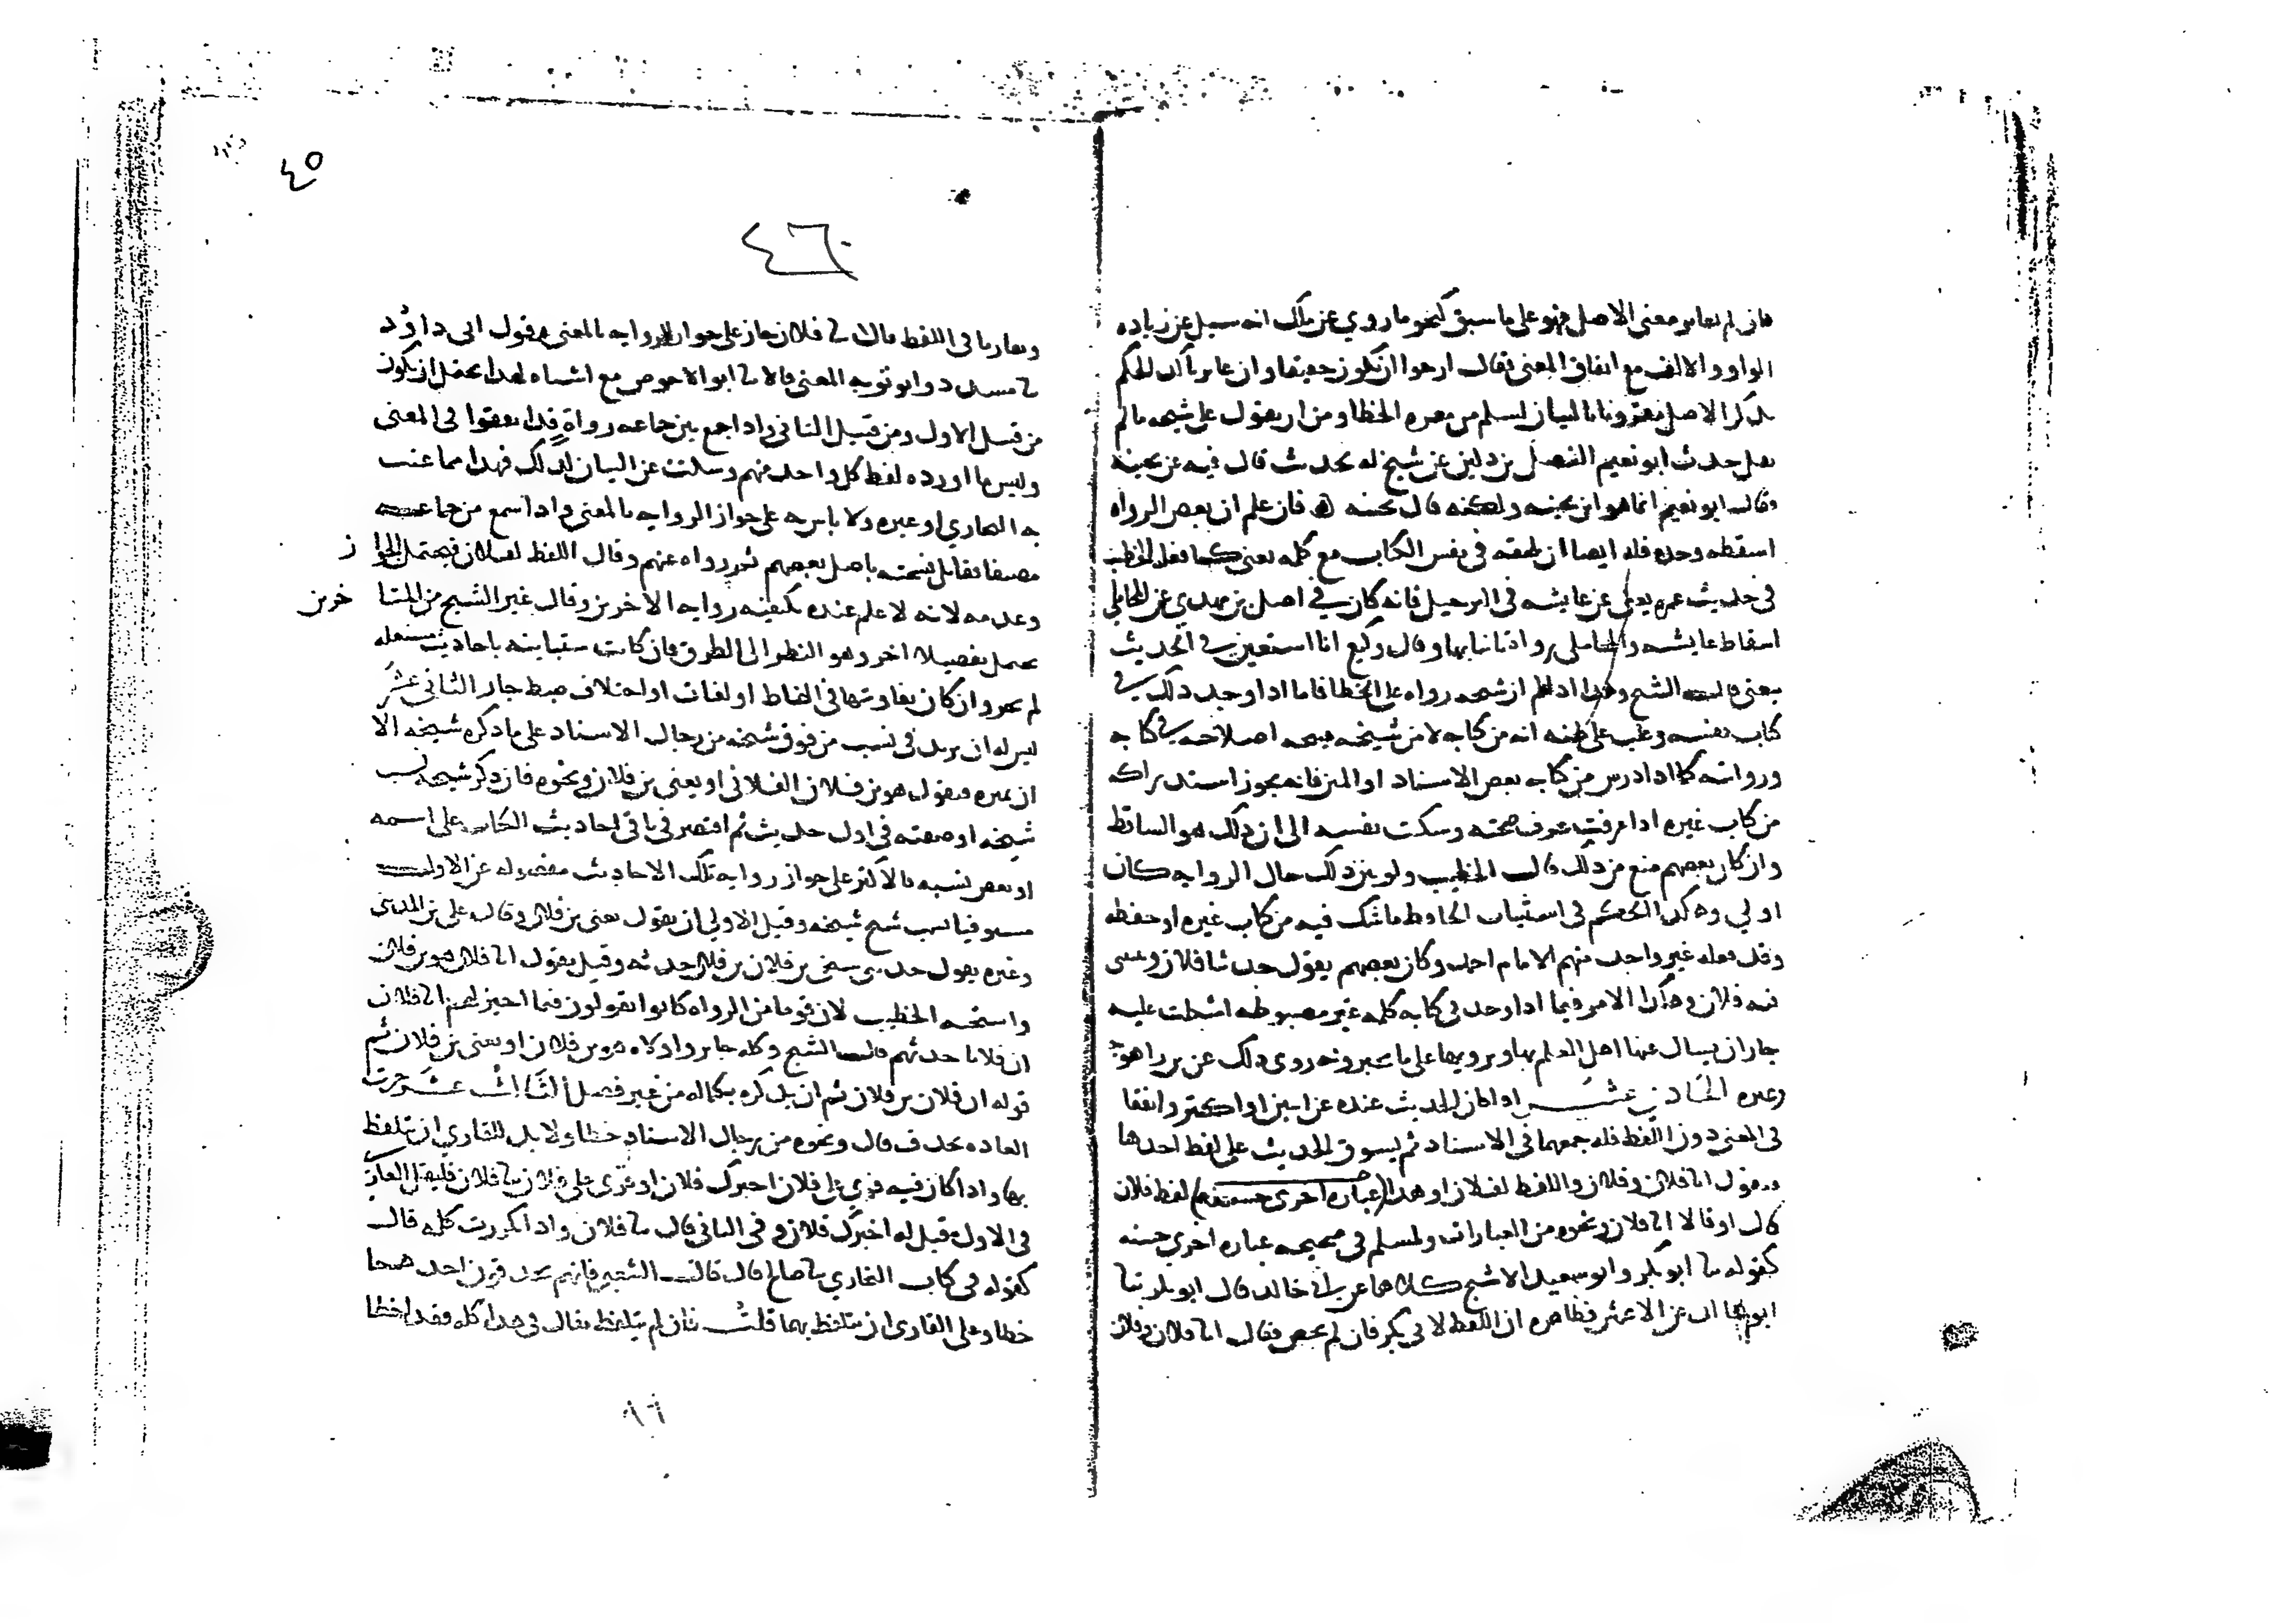 فان لم يغاير معنى الاصل فهو على ما سبق كنحو ما روي عن ملك انه سيل عن زياده
الواو والالف مع اتفاق المعنى فقال ارجوا ان تكون خفيفا وان غاير تاكد الحكم
بذكر الاصل مقرونا بالبيان ليسلم من معره الخطا ومن ان يقول على شيخه ما لم
يقل حدث ابو نعيم الفضل بن دكين عن شيخ له بحديث قال فيه عن بحينه
وقال ابو نعيم انما هو ابن بحينه ولكنه قال بحينه فان علم ان بعض الرواه
اسقطه وحده فله ايضا ان يلحقه في نفس الكتاب مع كلمه يعني كما فعل الخطيب
في حديث عمره يعني عن عايشه في الترجيل فانه كان في اصل بن مهدي عن المحاملي
اسقاط عايشه والمحاملي رواه بها وقال وكيع انا استعين في الحديث
بيعني قال الشيخ وهذا اذا علم ان شيخه رواه على الخطا فاما اذا وجد ذلك في
كتاب نفسه وغلب على ظنه انه من كتابه لا من شيخه فيتجه اصلاحه في كتابه
وروايته كما اذا درس من كتابه بعض الاسناد او المتن فانه يجوز استدراكه
من كتاب غيره اذا عرف صحته وسكنت نفسه الى ان ذلك هو الساقط
وان كان بعضهم منع من ذلك قال الخطيب ولو بين ذلك حال الروايه كان
اولي وهكذا الحكم في استثبات الحافظ ما شك فيه من كتاب غيره او حفظه
وقد فعله غير واحد منهم الامام احمد وكان بعضهم يقول حدثنا فلان وثبتني
فيه فلان وهكذا الامر فيما اذا وجد في كتابه كلمه غير مضبوطه اشكلت عليه
جاز ان يسال عنها اهل العلم بها ويرويها على ما يخبرونه روى ذلك عن بن راهويه
وغيره الحادي عشر اذا كان الحديث عنده عن اثنين او اكثر واتفقا
في المعنى دون اللفظ فله جمعهما في الاسناد ثم يسوق الحديث على لفظ احدهما
فيقول انا فلان وفلان واللفظ لفلان او هذا لفظ فلان
قال او قالا انا فلان ونحوه من العبارات ولمسلم في صحيحه عباره اخري حسنه
كقوله ثنا ابو بكر وابو سعيد الاشج كلاهما عن ابي خالد قال ابو بكر ثنا
ابو خالد عن الاعمش فظاهره ان اللفظ لابي بكر فان لم يخص فقال انا فلان وفلان
وتقاربا في اللفظ قالا ثنا فلان جاز على جواز الروايه بالمعنى وقول ابي داود
ثنا مسدد وابو توبه المعنى قالا ثنا ابو الاحوص مع اشباه لهذا يحتمل ان يكون
من قبيل الاول ومن قبيل الثاني واذا جمع بين جماعه رواة قد اتفقوا في المعنى
وليس ما اورده لفظ كل واحد منهم وسكت عن البيان لذلك فهذا مما عيب
به البخاري او غيره ولا باس به على جواز الروايه بالمعنى واذا سمع من جماعه
مصنفا فقابل نسخته باصل بعضهم ثم رواه عنهم وقال اللفظ لفلان فيحتمل الجواز
وعدمه لانه لا علم عنده بكيفيه روايه الاخرين وقال غير الشيخ من المتاخرين
يحتمل تفصيلا اخر وهو النظر الى الطرق فان كانت متباينه باحاديث مستقله
لم يجز وان كان تفاوتها في الفاظ او لغات او اختلاف ضبط جاز الثاني عشر
ليس له ان يزيد في نسب من فوق شيخه من رجال الاسناد على ما ذكره شيخه الا
ان يميزه فيقول هو بن فلان الفلاني او يعني بن فلان ونحوه فان ذكر شيخه نسب
شيخه او صفته في اول حديث ثم اقتصر في باقي احاديث الكتاب على اسمه
او بعض نسبه فالاكثر على جواز روايه تلك الاحاديث مفصوله عن الاول
مستوفيا نسب شيخ شيخه وقيل الاولي ان يقول يعني بن فلان وقال علي بن المديني
وغيره يقول حدثني شيخي بن فلان بن فلان حدثه وقيل يقول انا فلان هو بن فلان
واستحبه الخطيب لان قوما من الرواه كانوا يقولون فيما اجيز لهم انا فلان
ان فلانا حدثهم قال الشيخ وكله جايز واولاه هو بن فلان او يعني بن فلان ثم
قوله ان فلان بن فلان ثم ان يذكره بكماله من غير فصل الثالث عشر جرت
العاده بحذف قال ونحوه من رجال الاسناد خطا ولا بد للقاري ان يتلفظ
بها واذا كان فيه قري على فلان اخبرك فلان او قري على فلان ثنا فلان فليقل القاري
في الاول قيل له اخبرك فلان وفي الثاني قال ثنا فلان واذا تكررت كلمه قال
كقوله في كتاب البخاري ثنا صالح قال قال الشعبي فانهم يحذفون احدهما
خطا وعلى القاري ان يتلفظ بهما قلت فان لم يتلفظ بقال في هذا كله فقد اخطا
٤٥
٤٦